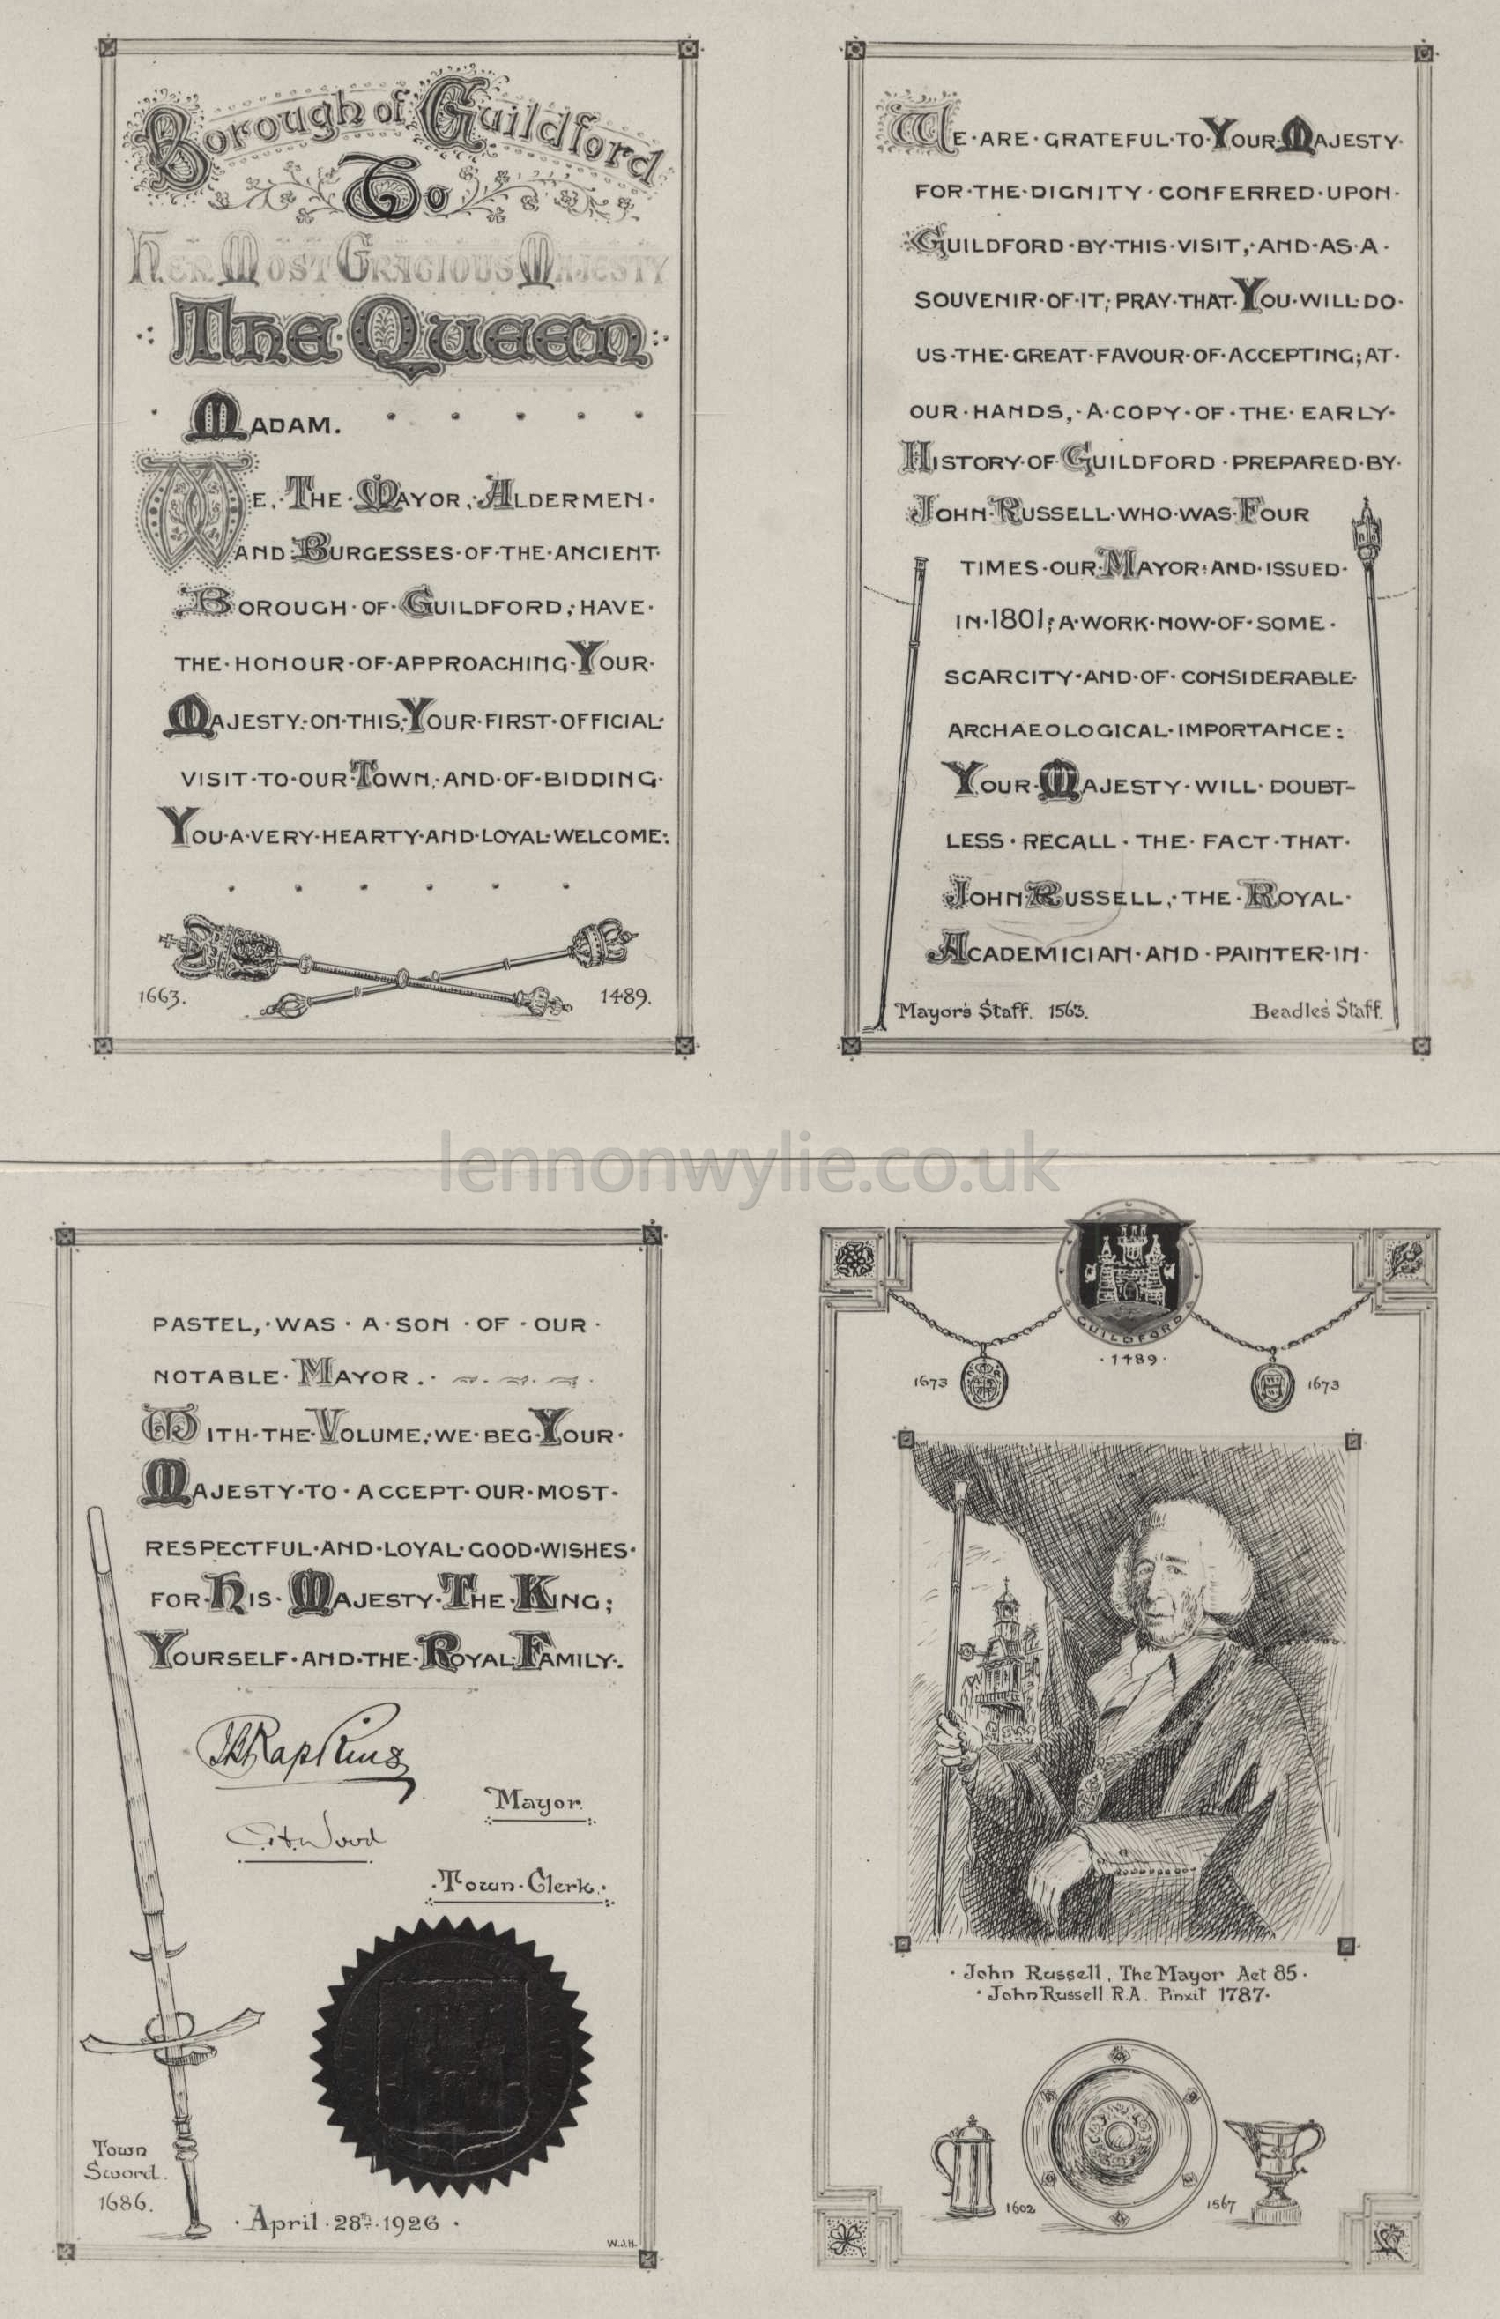 Borough of Guildford
To
Her Most Gracious Majesty
The Queen
Madam.
We, The Mayor, Aldermen
and Burgesses of the ancient
Borough of Guildford, have
the honour of approaching Your
Majesty on this, Your first official
visit to our Town, and of bidding
You a very hearty and loyal welcome:
1663.
1489.
We are grateful to Your Majesty
for the dignity conferred upon
Guildford by this visit, and as a
souvenir of it; pray that You will do
us the great favour of accepting; at
our hands, a copy of the early
History of Guildford prepared by
John Russell who was Four
times our Mayor and issued
in 1801; a work now of some
scarcity and of considerable
archaeological importance:
Your Majesty will doubt-
less recall the fact that
John Russell, the Royal
Academician and painter in
Mayor's Staff. 1563.
Beadle's Staff.
lennonwylie.co.uk
pastel, was a son of our
notable Mayor.
With the Volume, we beg Your
Majesty to accept our most
respectful and loyal good wishes
for His Majesty The King;
Yourself and the Royal Family.
Rapkins
Mayor
Wood
Town Clerk.
Town
Sword.
1686.
April 28th 1926
W.J.H.
GUILDFORD
1489
1673
C R
1673
John Russell, The Mayor Aet 85
John Russell R.A. Pinxit 1787
1602
1567